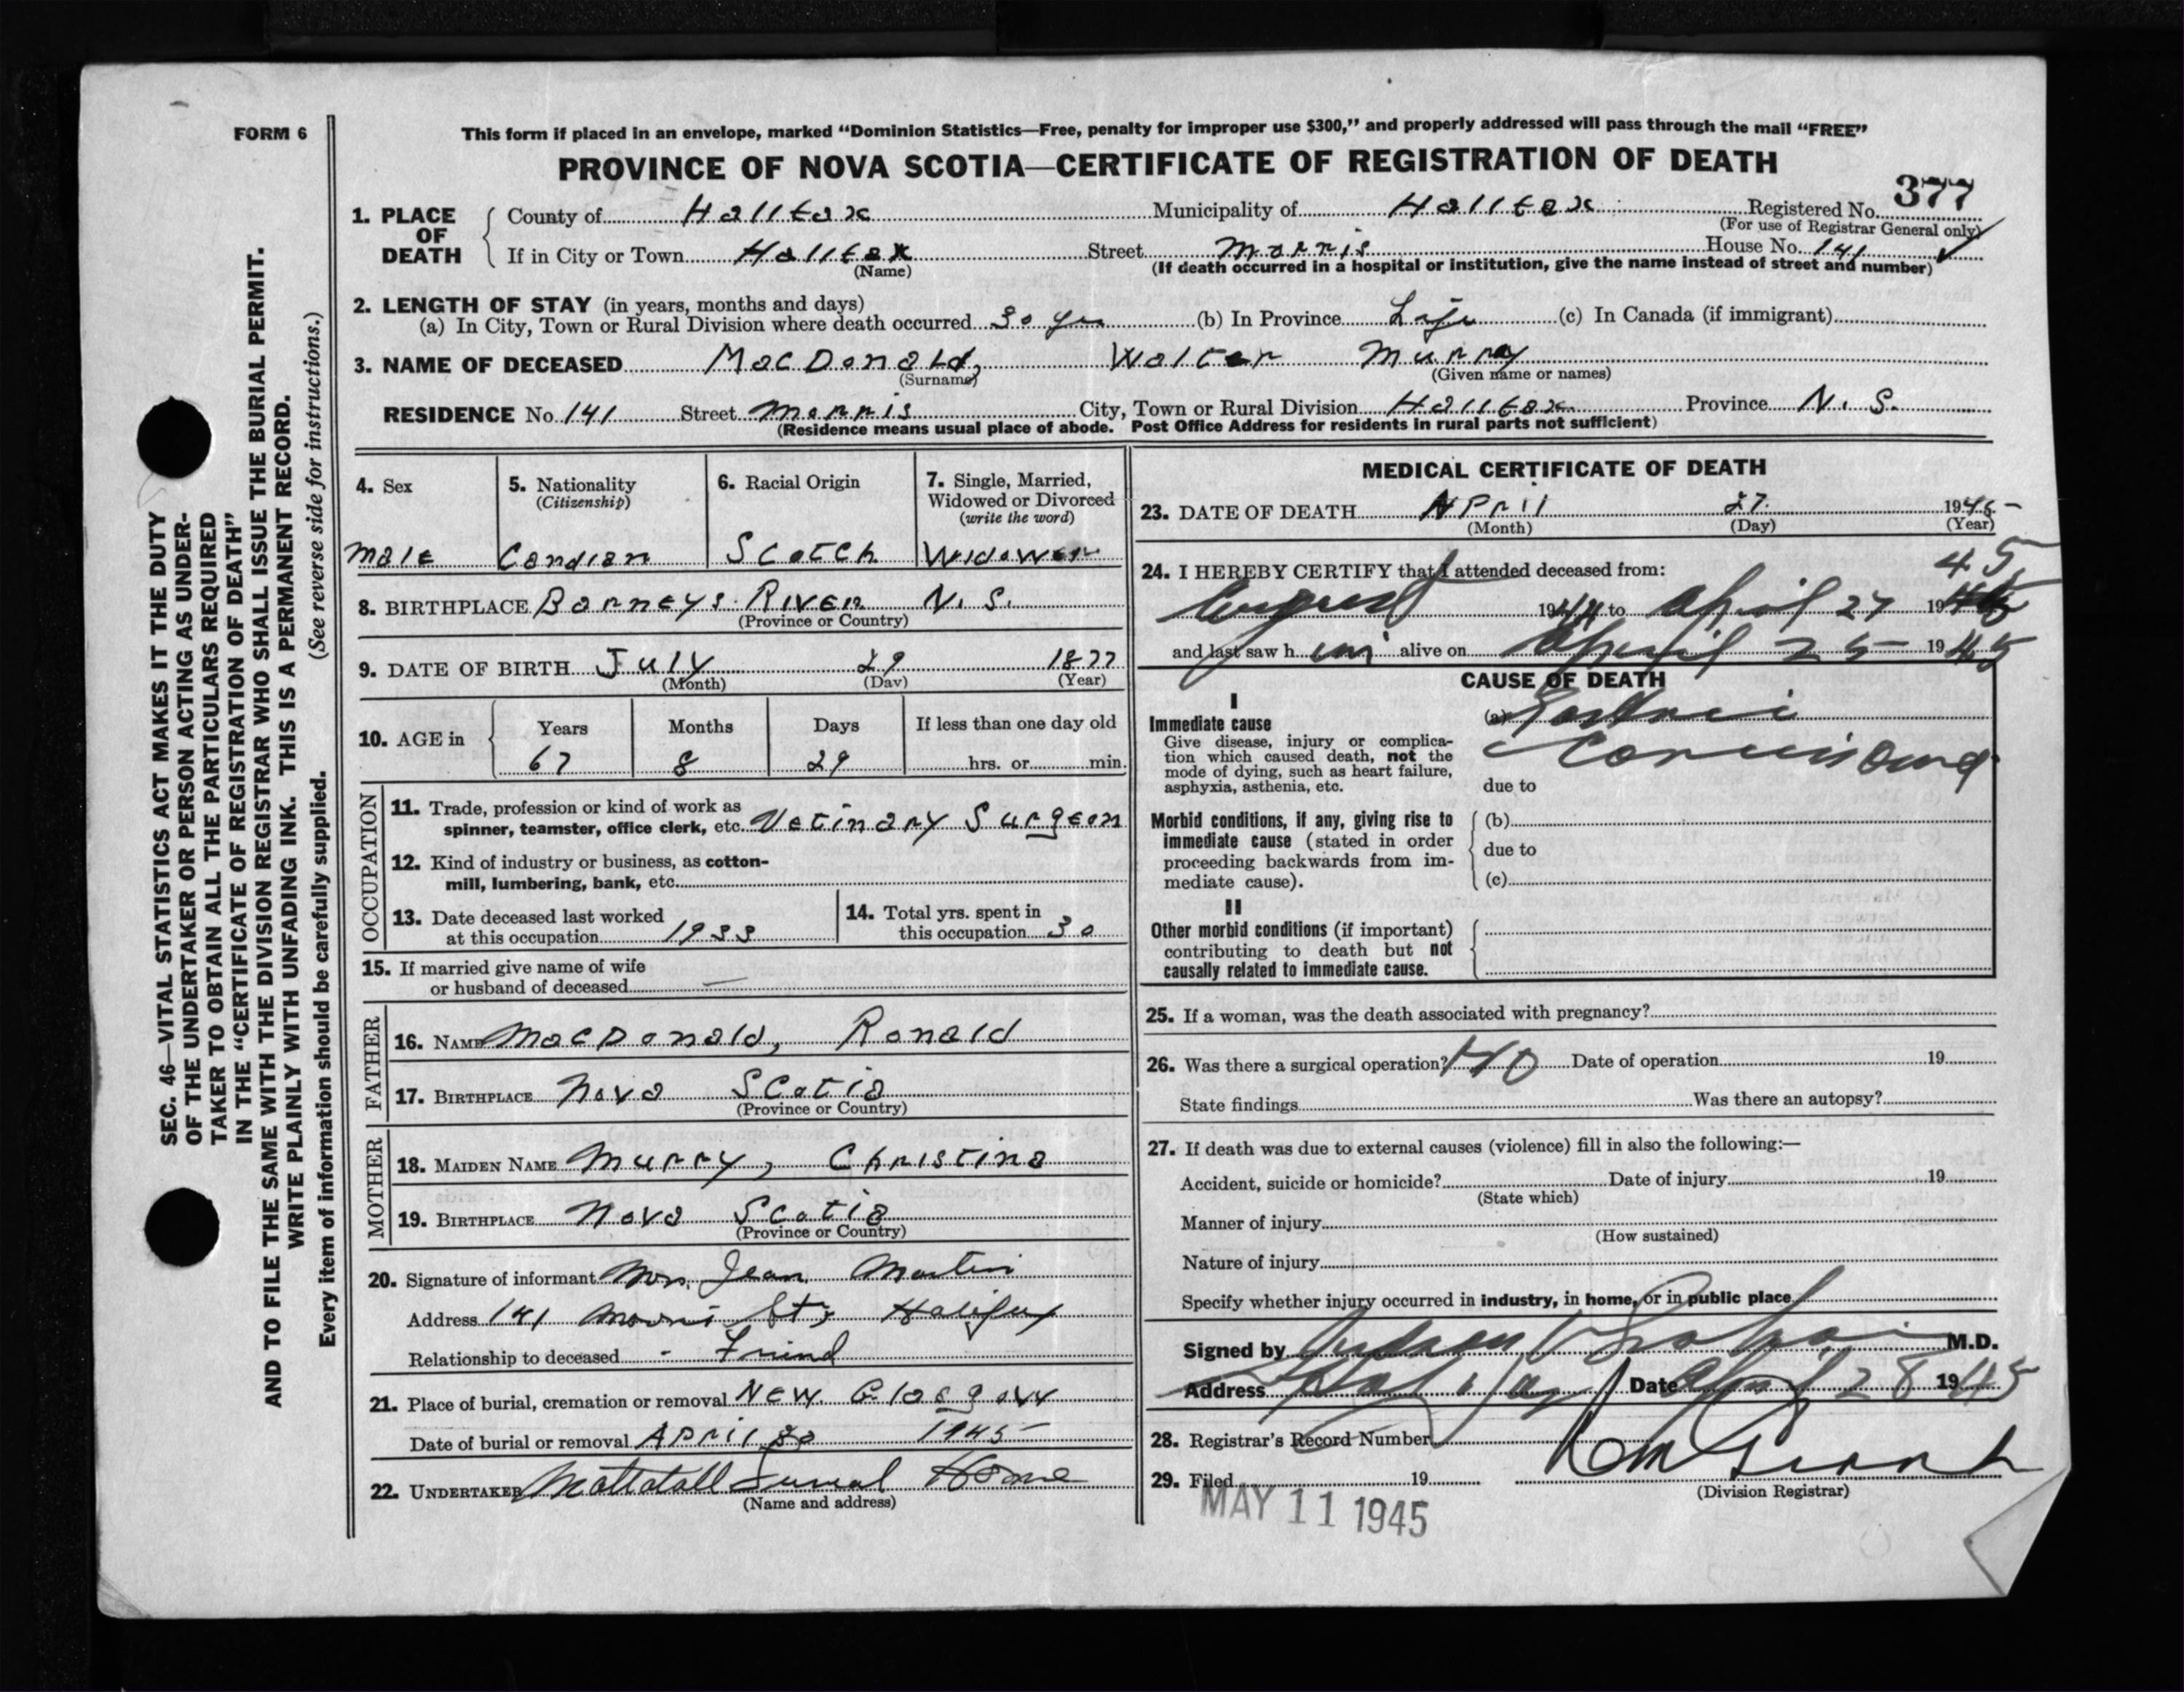 FORM 6
This form if placed in an envelope, marked "Dominion Statistics—Free, penalty for improper use $300," and properly addressed will pass through the mail "FREE"
PROVINCE OF NOVA SCOTIA—CERTIFICATE OF REGISTRATION OF DEATH
377
1. PLACE OF DEATH
County of Halifax Municipality of Halifax Registered No.
(For use of Registrar General only)
If in City or Town Halifax Street Morris House No. 141
(Name) (If death occurred in a hospital or institution, give the name instead of street and number)
2. LENGTH OF STAY (in years, months and days)
(a) In City, Town or Rural Division where death occurred 30 yrs (b) In Province Life (c) In Canada (if immigrant)
3. NAME OF DECEASED MacDonald, Walter Murray
(Surname) (Given name or names)
RESIDENCE No. 141 Street Morris City, Town or Rural Division Halifax Province N. S.
(Residence means usual place of abode. Post Office Address for residents in rural parts not sufficient)
4. Sex
Male
5. Nationality
(Citizenship)
Candian
6. Racial Origin
Scotch
7. Single, Married, Widowed or Divorced
(write the word)
Widower
8. BIRTHPLACE Barneys River N. S.
(Province or Country)
9. DATE OF BIRTH July 29 1877
(Month) (Day) (Year)
10. AGE in
Years Months Days If less than one day old
67 8 29 hrs. or min.
OCCUPATION
11. Trade, profession or kind of work as
spinner, teamster, office clerk, etc. Vetinary Surgeon
12. Kind of industry or business, as cotton-
mill, lumbering, bank, etc.
13. Date deceased last worked
at this occupation 1933
14. Total yrs. spent in
this occupation 30
15. If married give name of wife
or husband of deceased —
FATHER
16. NAME MacDonald, Ronald
17. BIRTHPLACE Nova Scotia
(Province or Country)
MOTHER
18. MAIDEN NAME Murry, Christina
19. BIRTHPLACE Nova Scotia
(Province or Country)
20. Signature of informant Mrs. Jean Martin
Address 141 Morris St, Halifax
Relationship to deceased - Friend
21. Place of burial, cremation or removal New Glasgow
Date of burial or removal April 30 1945
22. UNDERTAKER Mattatall Funeral Home
(Name and address)
MEDICAL CERTIFICATE OF DEATH
23. DATE OF DEATH April 27 1945
(Month) (Day) (Year)
24. I HEREBY CERTIFY that I attended deceased from:
45
August 1944 to April 27 19
and last saw h im alive on April 25 1945
CAUSE OF DEATH
I
Immediate cause
Give disease, injury or complica-
tion which caused death, not the
mode of dying, such as heart failure,
asphyxia, asthenia, etc.
(a)
due to
Morbid conditions, if any, giving rise to
immediate cause (stated in order
proceeding backwards from im-
mediate cause).
(b)
due to
(c)
II
Other morbid conditions (if important)
contributing to death but not
causally related to immediate cause.
25. If a woman, was the death associated with pregnancy?
26. Was there a surgical operation? No Date of operation 19
State findings Was there an autopsy?
27. If death was due to external causes (violence) fill in also the following:—
Accident, suicide or homicide? Date of injury 19
(State which)
Manner of injury
(How sustained)
Nature of injury
Specify whether injury occurred in industry, in home, or in public place
Signed by M.D.
Address Halifax Date April 28 1945
28. Registrar's Record Number
29. Filed 19
(Division Registrar)
MAY 11 1945
SEC. 46—VITAL STATISTICS ACT MAKES IT THE DUTY
OF THE UNDERTAKER OR PERSON ACTING AS UNDER-
TAKER TO OBTAIN ALL THE PARTICULARS REQUIRED
IN THE "CERTIFICATE OF REGISTRATION OF DEATH"
AND TO FILE THE SAME WITH THE DIVISION REGISTRAR WHO SHALL ISSUE THE BURIAL PERMIT.
WRITE PLAINLY WITH UNFADING INK. THIS IS A PERMANENT RECORD.
Every item of information should be carefully supplied. (See reverse side for instructions.)